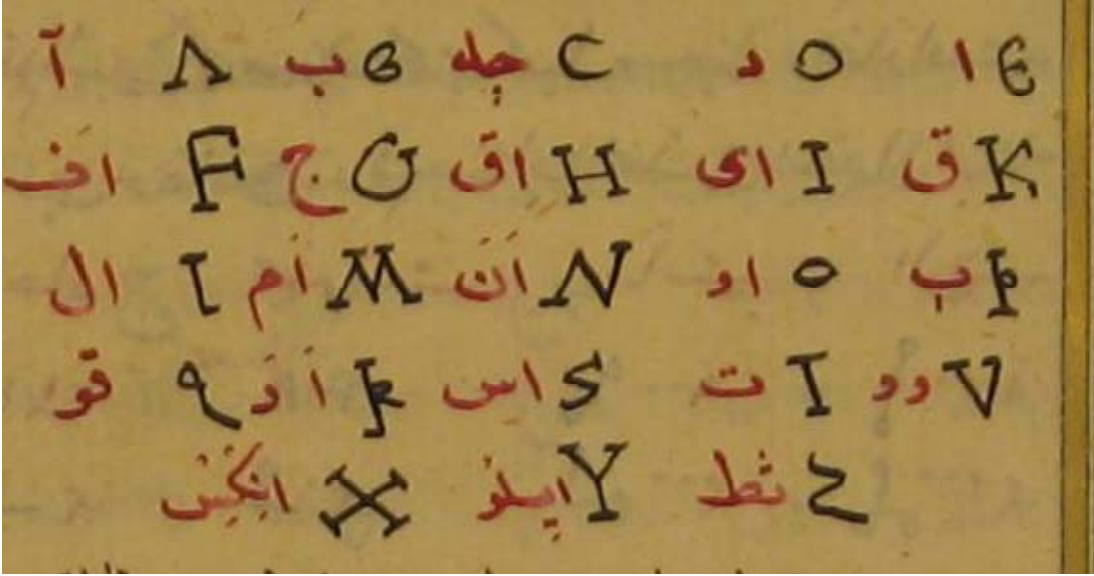 آ A ب B جله C د D ا E
اف F ج G اق H ای I ق K
ال L اَم M اَن N او O ب P
قو q اَرَ R اس S ت T وو V
X Y ثط Z